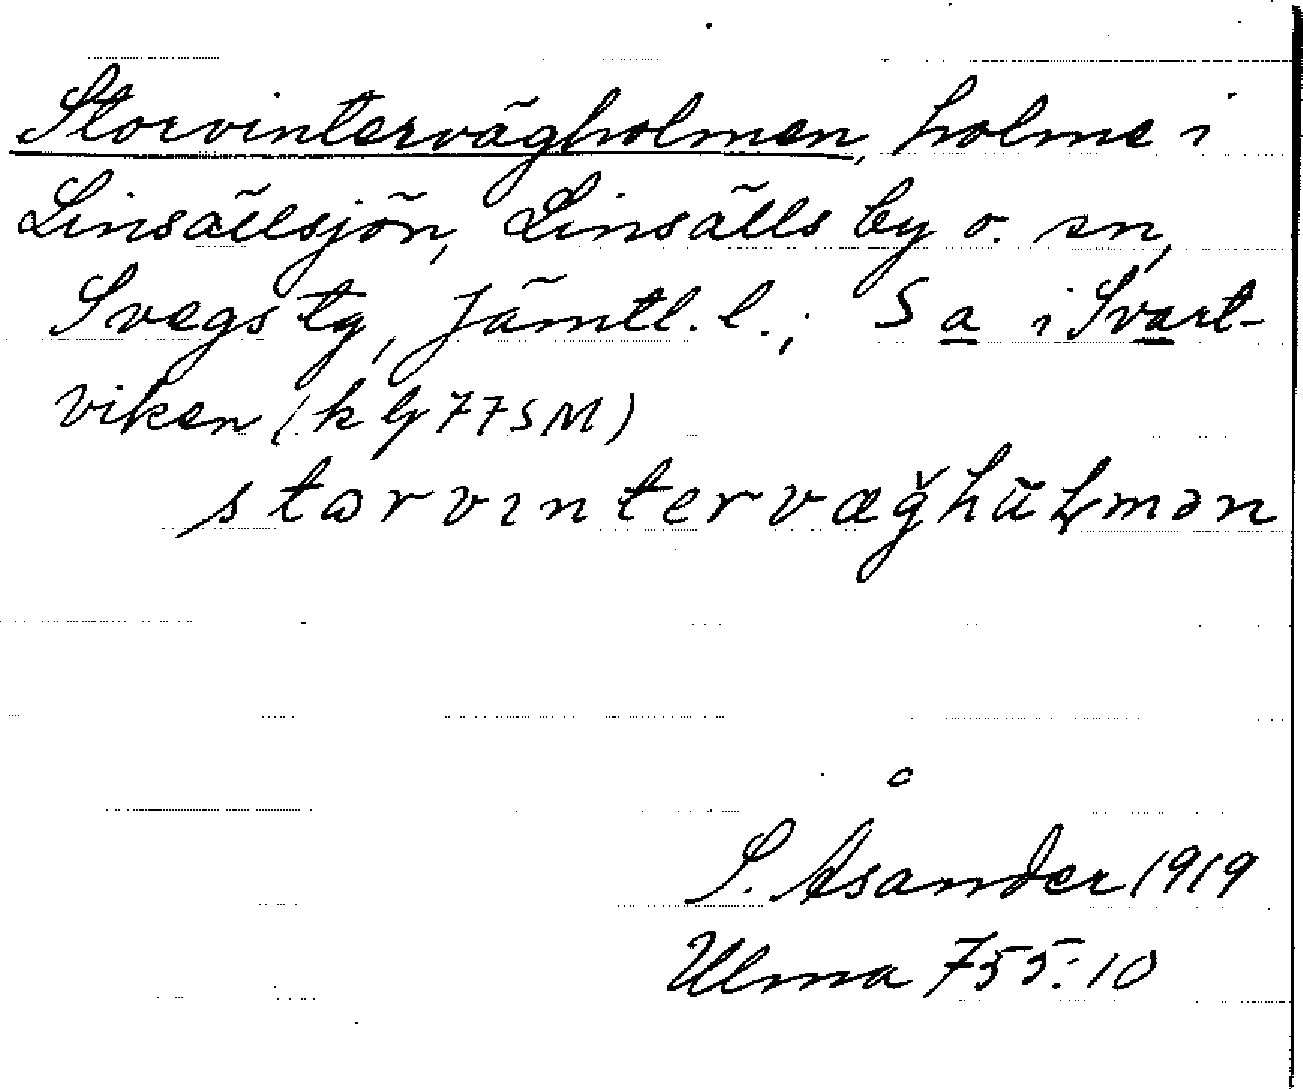 Storvintervägholmen, holme i
Linsällsjön, Linsälls by o. sn,
Svegs tg, Jämtl. l.; S a i Svart-
viken (k bl 77 SM)
S. Åsander 1919
Ulma 755:10